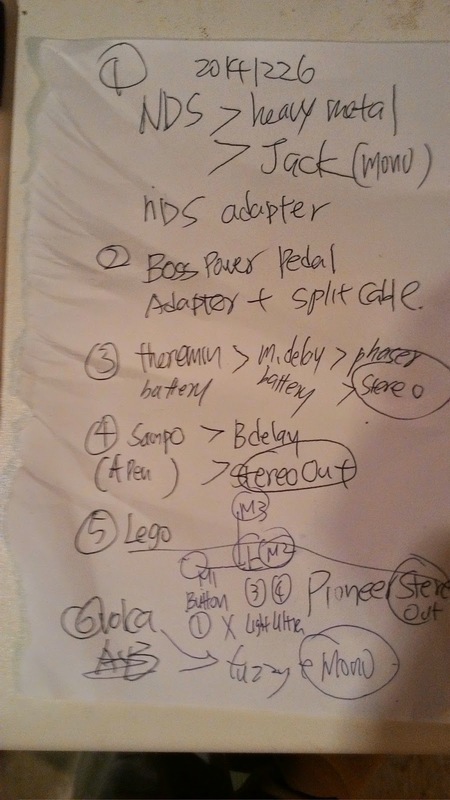 ① 20141226
NDS > heavy metal
> Jack (mono)
nDS adapter
② Boss Power Pedal
Adapter + split cable.
③ theremin > m.delay > phaser
battery battery > Stereo
④ Sampo > Bdelay
(A Pen) > Stereo Out
M3
⑤ Lego
L M2
M1
Button ③ ④ Pioneer Stereo
Out
① X Light Ultra
⑥ Volca
fuzzy Mono